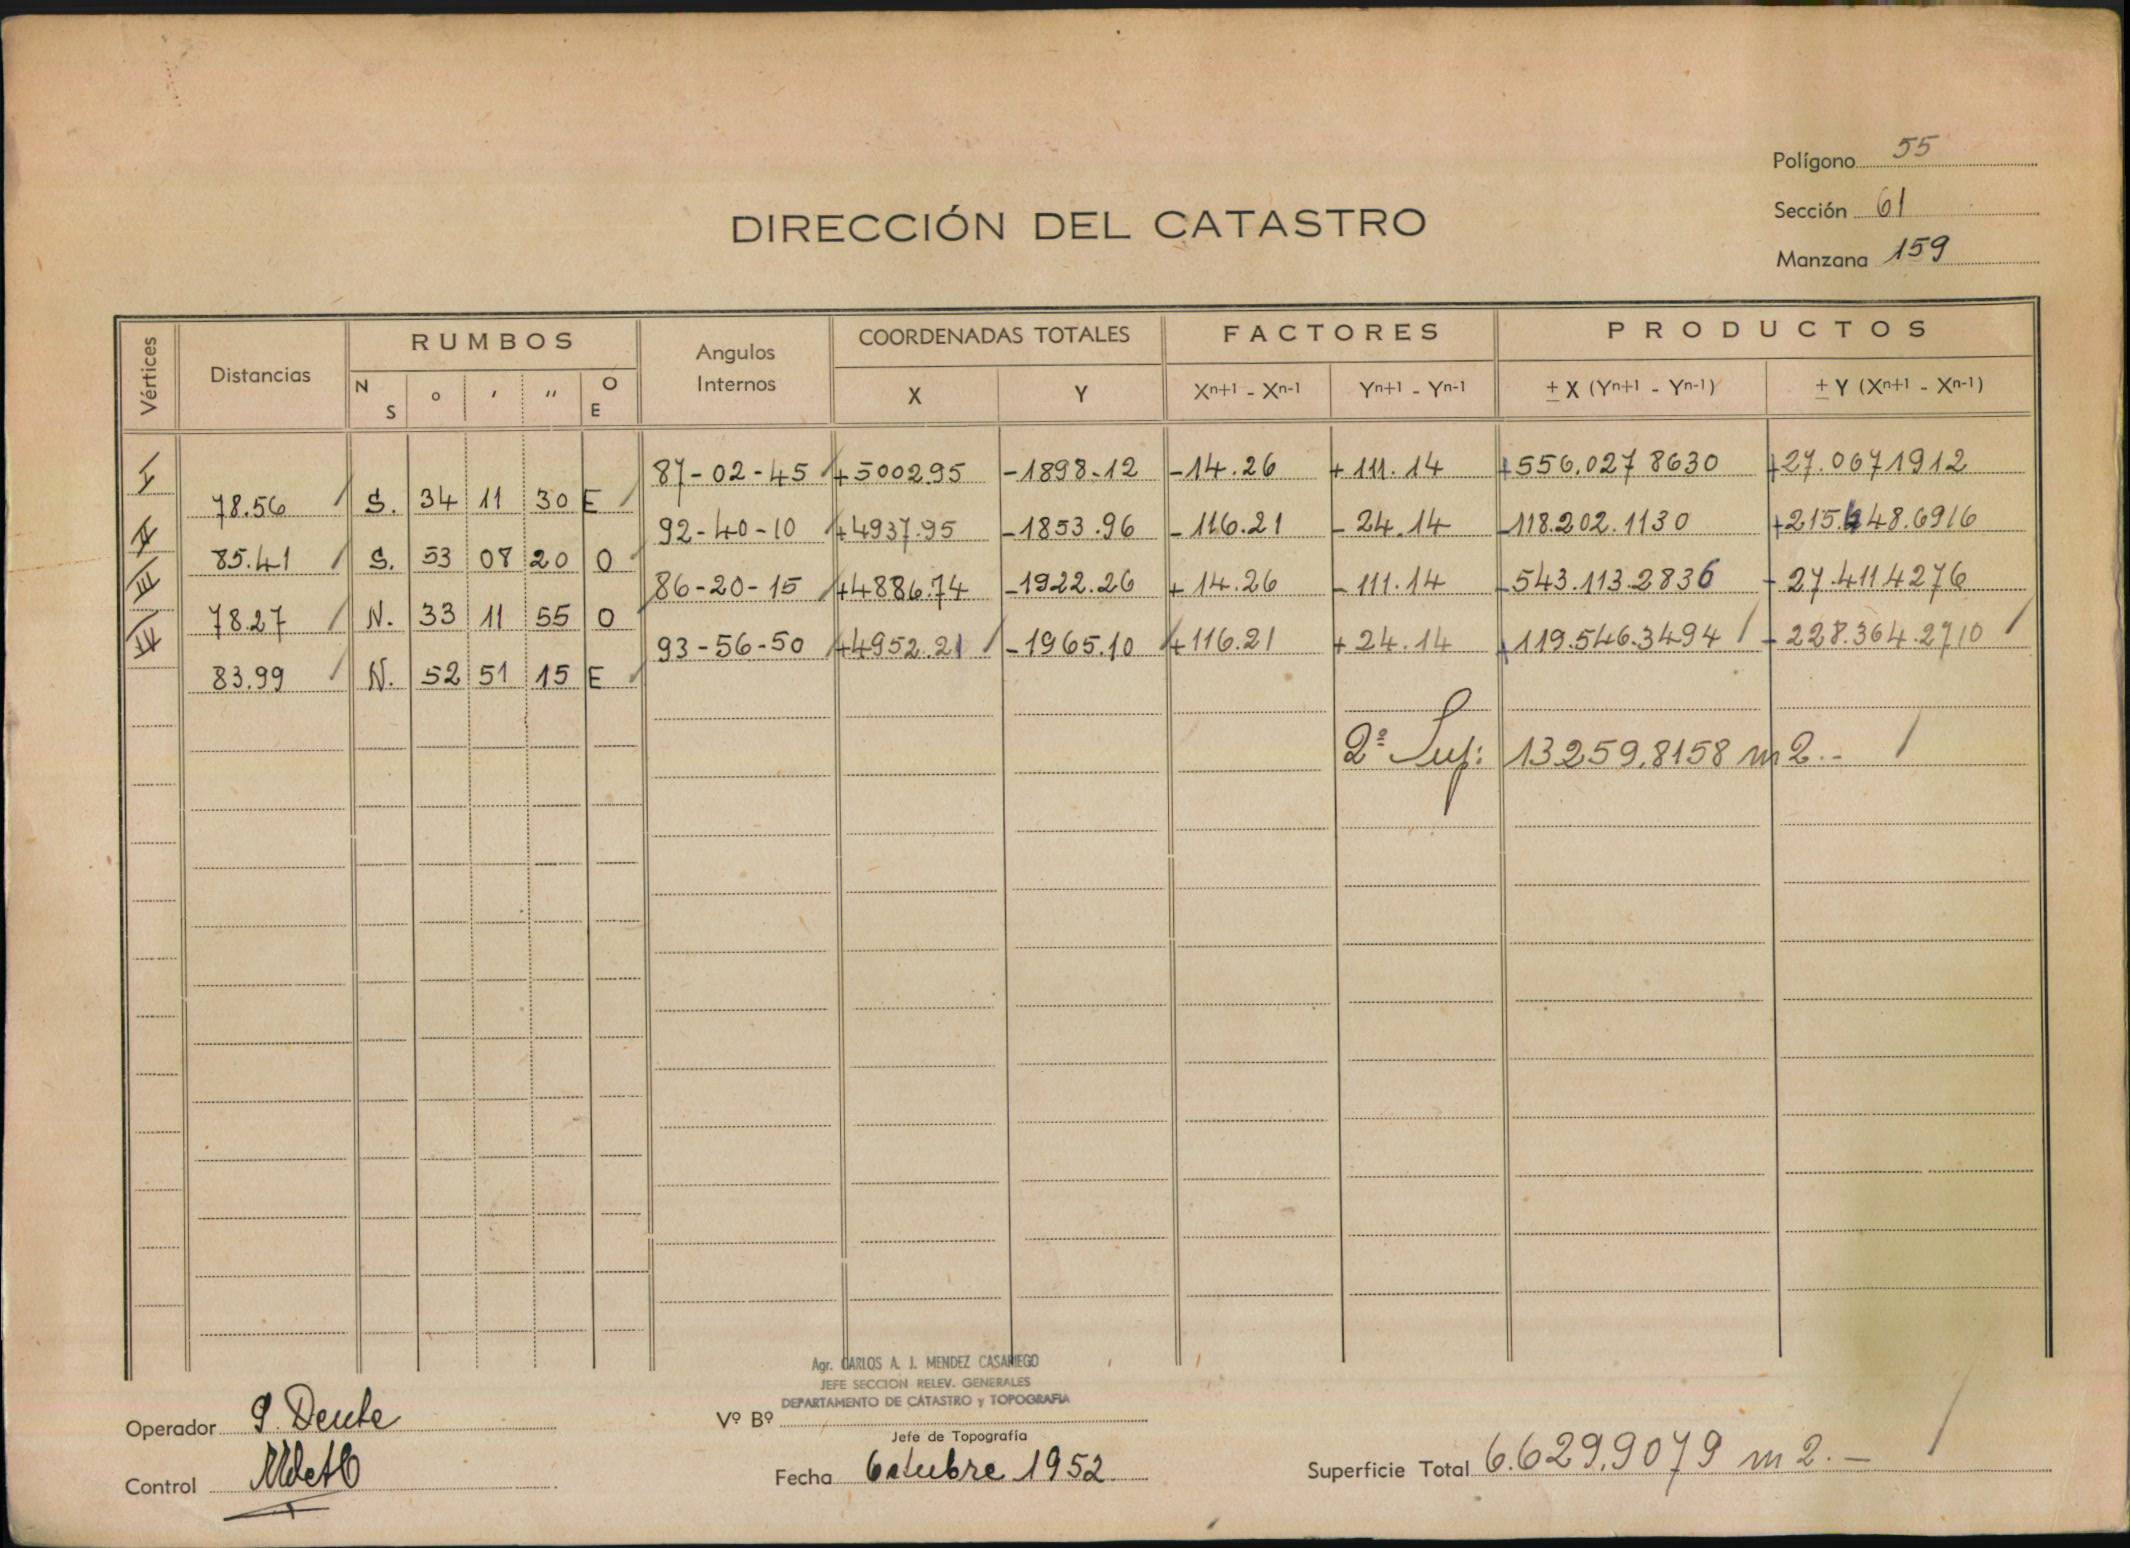 Polígono 55
Sección 61
Manzana 159
DIRECCIÓN DEL CATASTRO
Vértices Distancias RUMBOS Angulos Internos COORDENADAS TOTALES FACTORES PRODUCTOS
N S ° ′ ″ O E X Y Xn+1 - Xn-1 Yn+1 - Yn-1 ± X (Yn+1 - Yn-1) ± Y (Xn+1 - Xn-1)
I 87-02-45 +5002.95 -1898.12 -14.26 +111.14 +556.027 8630 +27.067 1912
78.56 S. 34 11 30 E
II 92-40-10 +4937.95 -1853.96 -116.21 -24.14 -118.202.1130 +215.448.6916
85.41 S. 53 08 20 O
III 86-20-15 +4886.74 -1922.26 +14.26 -111.14 -543.113.2836 -27.411.4276
78.27 N. 33 11 55 O
IV 93-56-50 +4952.21 -1965.10 +116.21 +24.14 +119.546.3494 -228.364.2710
83.99 N. 52 51 15 E
2ª Sup: 13259,8158 m2.-
Agr. CARLOS A. J. MENDEZ CASARIEGO
JEFE SECCION RELEV. GENERALES
DEPARTAMENTO DE CATASTRO y TOPOGRAFIA
Operador
Vº Bº
Jefe de Topografía
Control
Fecha Octubre 1952
Superficie Total 6.629,9079 m2.-